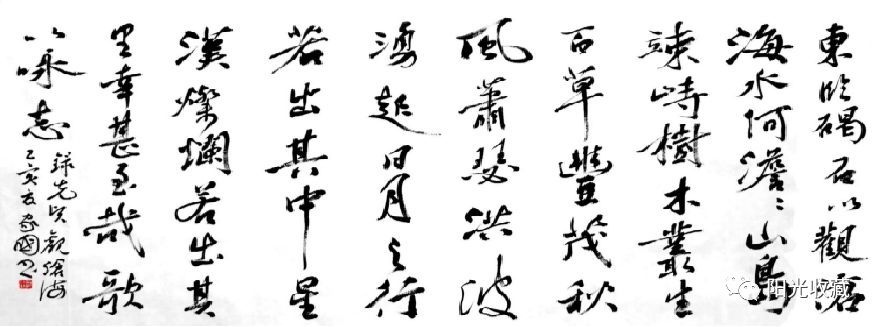 東臨碣石以觀滄
海水何澹〻山島
竦峙樹木叢生
百草豐茂秋
風蕭瑟洪波
湧起日月之行
若出其中星
漢燦爛若出其
里幸甚至哉歌
以咏志
錄先賢觀滄海
己亥 家國書
阳光收藏